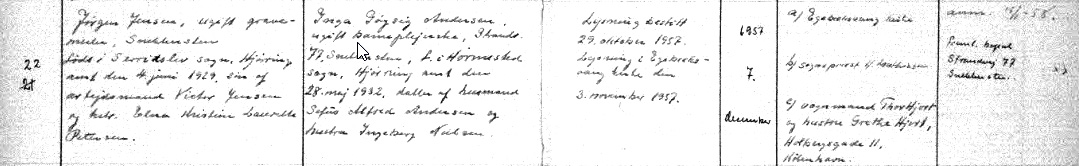 22
21
Jørgen Jensen, ugift grave-
mester, Snekkersten
født i Serridslev sogn, Hjørring
amt den 4. juni 1929, søn af
arbejdsmand Victor Jensen
og hstr. Elna Kristine Laurette
Petersen.
Inga Andersen,
ugift barneplejerske, Strandv.
77, Snekkersten, f. i Hørmested
sogn, Hjørring amt den
28. maj 1932, datter af husmand
Sofus Alfred Andersen og
hustru Ingeborg Nielsen.
Lysning bestilt
29. oktober 1957.
Lysning i Egebæks-
vang kirke den
3. november 1957.
1957
7.
december
a) Egebæksvang kirke
b) sognepræst
c) vognmand Thor Hjort
og hustru Grethe Hjort,
Holbergsgade 11,
København.
anm.
Strandvej 77
Snekkersten.